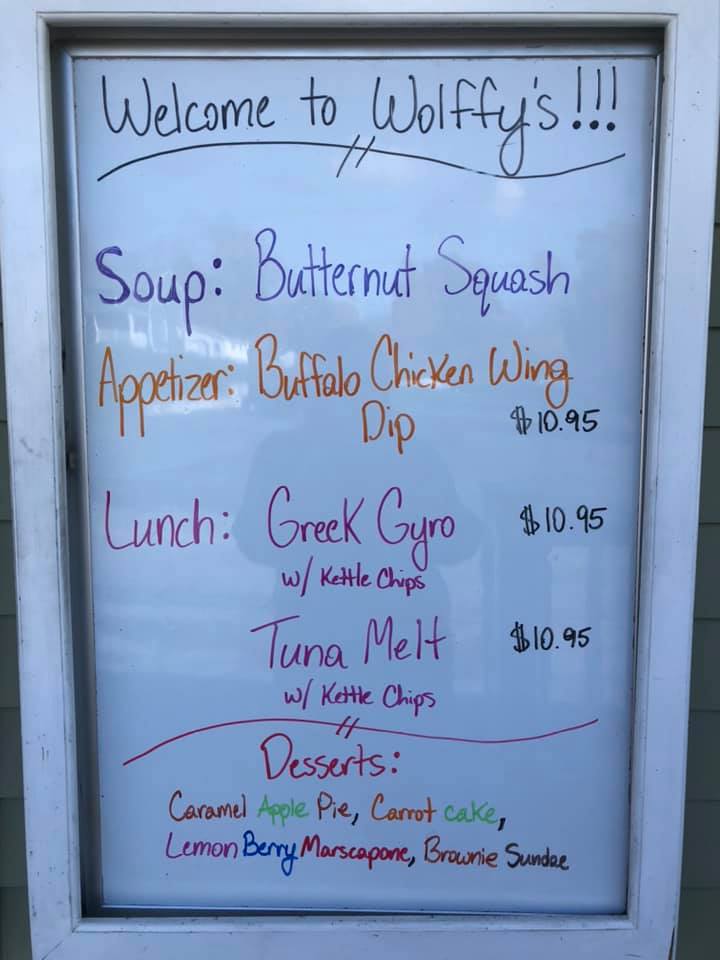 Welcome to Wolffy's!!!
Soup: Butternut Squash
Appetizer: Buffalo Chicken Wing
Dip $10.95
Lunch: Greek Gyro $10.95
w/ Kettle Chips
Tuna Melt $10.95
w/ Kettle Chips
Desserts:
Caramel Apple Pie, Carrot cake,
Lemon Berry Marscapone, Brownie Sundae